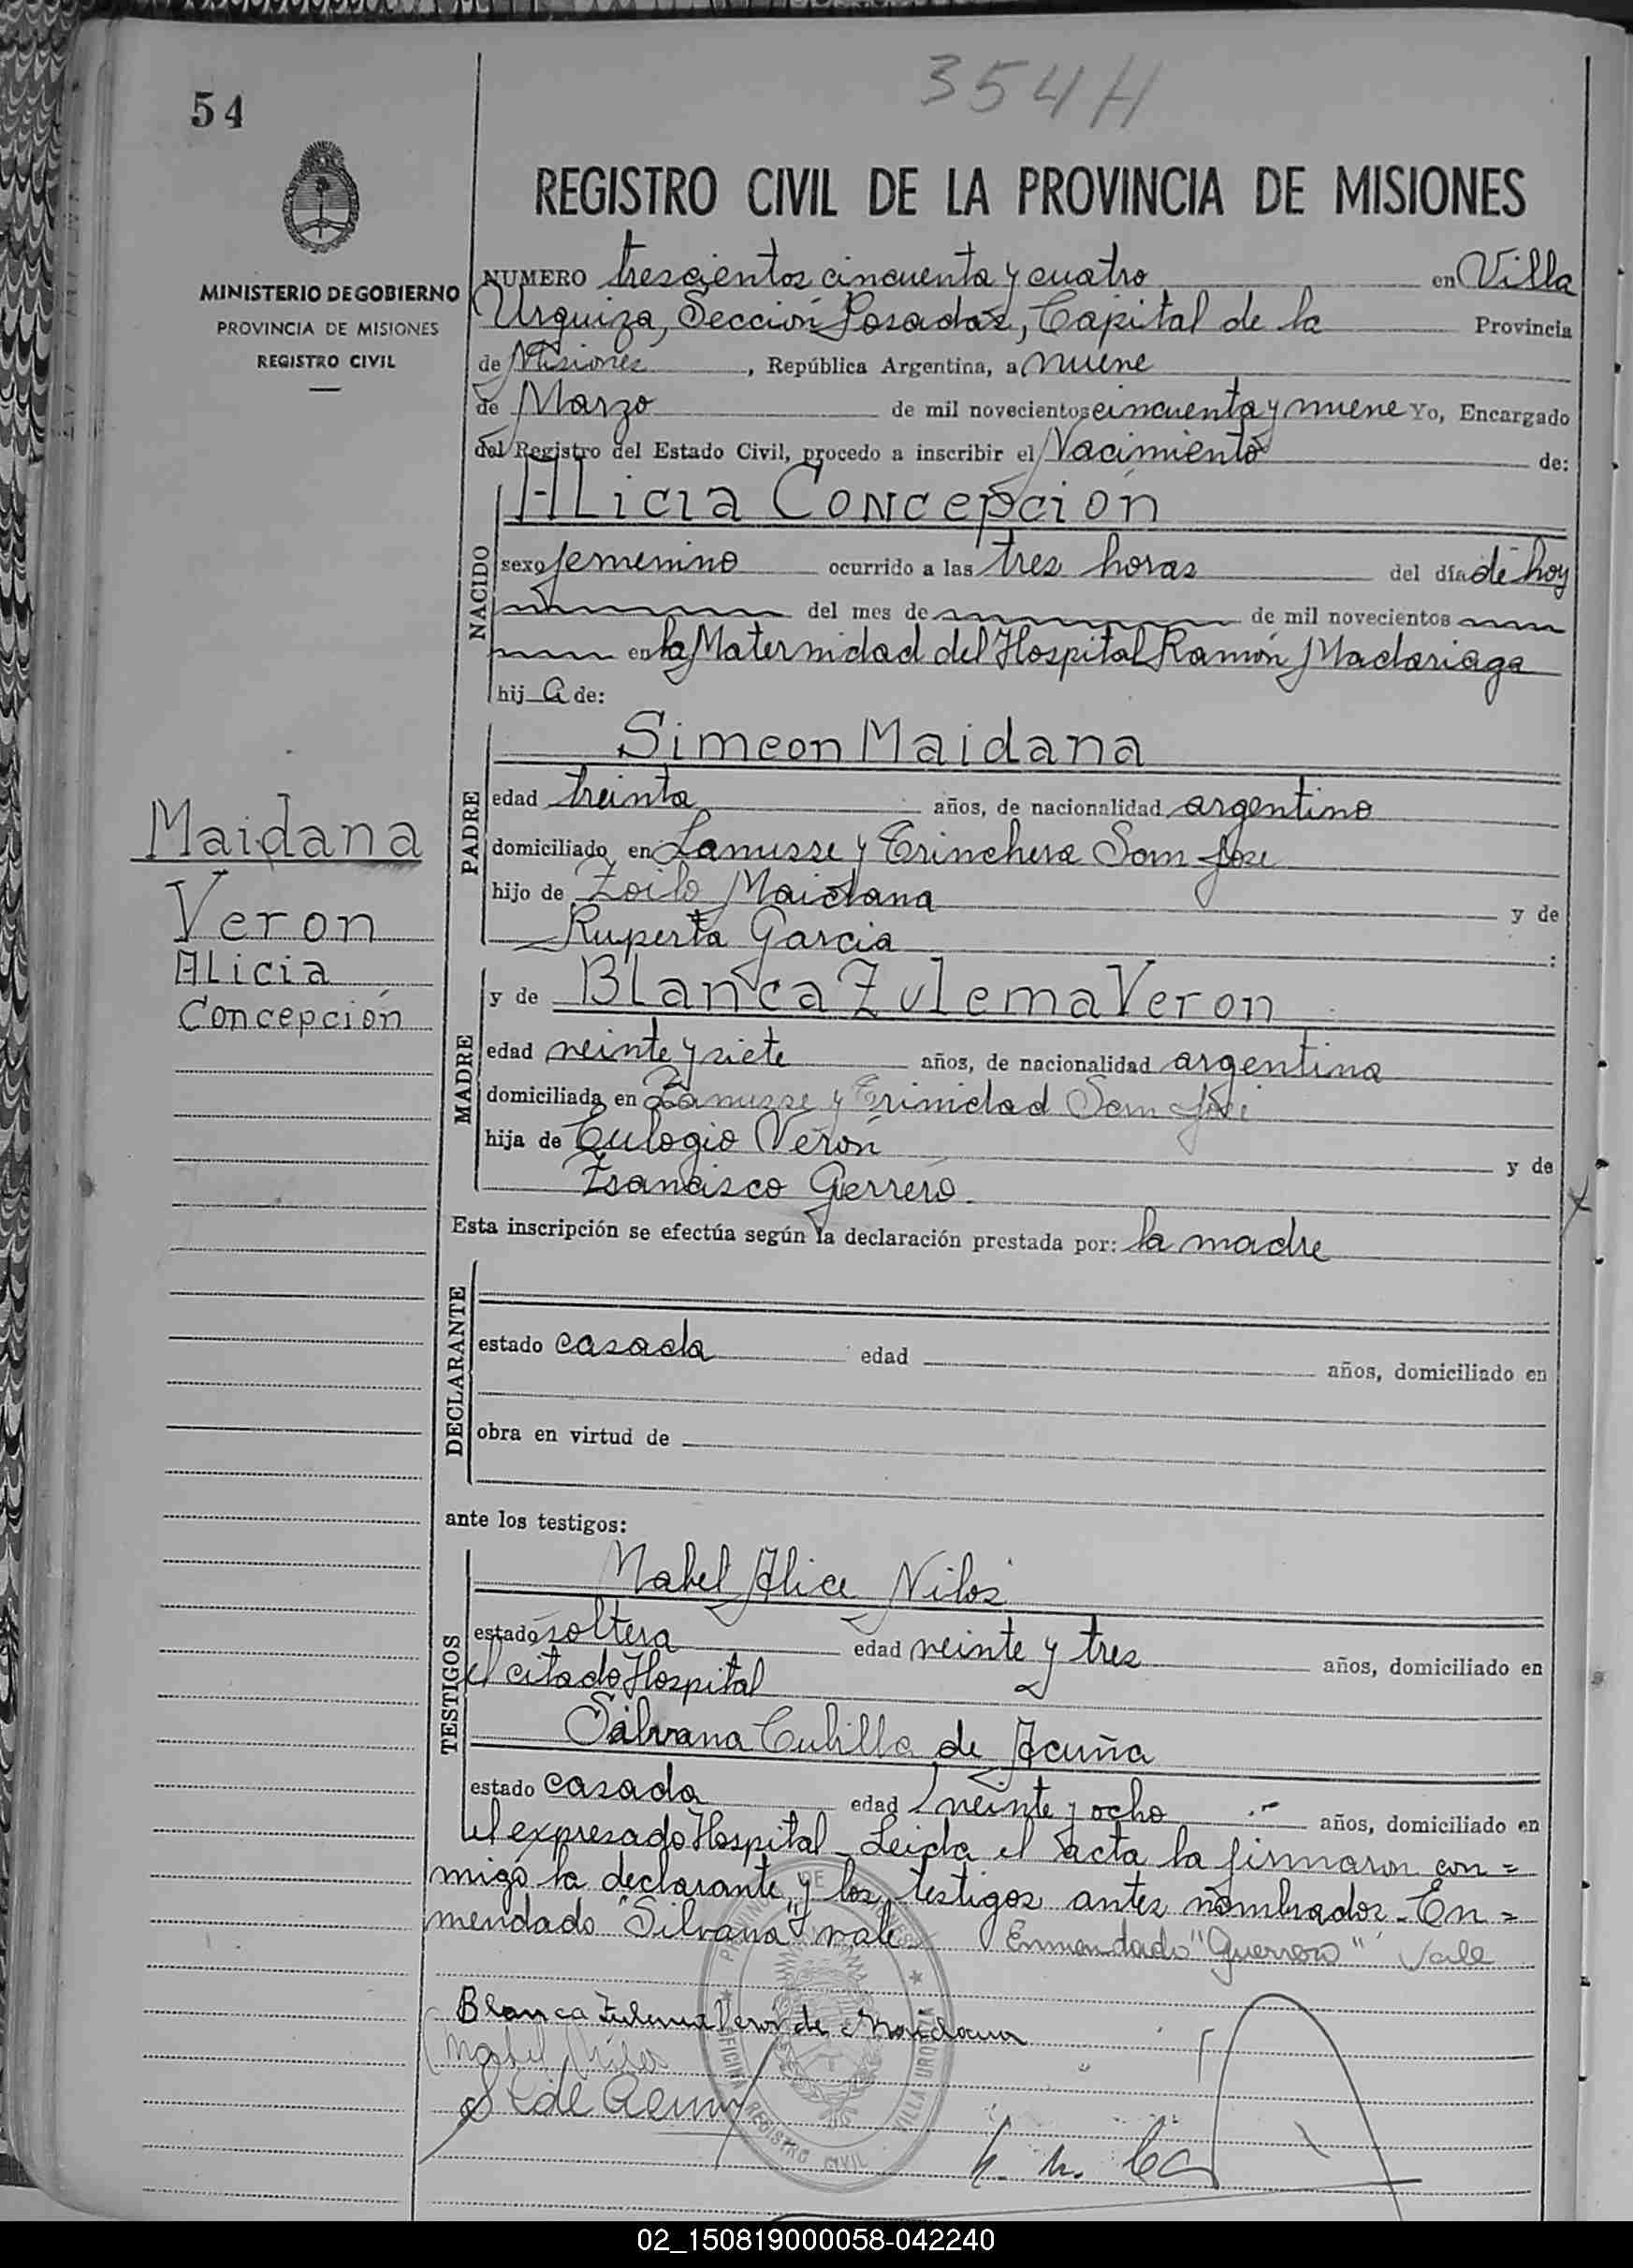 354H
54
REGISTRO CIVIL DE LA PROVINCIA DE MISIONES
MINISTERIO DE GOBIERNO
PROVINCIA DE MISIONES
REGISTRO CIVIL
NUMERO trescientos cincuenta y cuatro en Villa
Urquiza, Sección Posadas, Capital de la Provincia
de Misiones, República Argentina, a nueve
de Marzo de mil novecientos cincuenta y nueve Yo, Encargado
del Registro del Estado Civil, procedo a inscribir el Nacimiento de:
NACIDO
ALicia Concepción
sexo femenino ocurrido a las tres horas del día de hoy
del mes de de mil novecientos
en la Maternidad del Hospital Ramón Madariaga
hij a de:
PADRE
Simeon Maidana
edad treinta años, de nacionalidad argentino
domiciliado en Lanusse y Trinchera San José
hijo de Zoilo Maidana y de
Ruperta Garcia :
Maidana
Veron
ALicia
Concepción
MADRE
y de BLanca Zulema Veron
edad veinte y siete años, de nacionalidad argentina
domiciliada en Lanusse y Trinidad San José
hija de Eulogio Verón y de
Francisco Gerrero
Esta inscripción se efectúa según la declaración prestada por: la madre
DECLARANTE
estado casada edad años, domiciliado en
obra en virtud de
ante los testigos:
TESTIGOS
Mabel Alice Nilos
estado soltera edad veinte y tres años, domiciliado en
el citado Hospital
Silvana Cubilla de Acuña
estado casada edad veinte y ocho años, domiciliado en
el expresado Hospital - Leida el acta la firmaron con=
migo la declarante y los testigos antes nombrados - En=
mendado "Silvana" vale Enmendado "Guerrero" Vale
Blanca Zulema Veron de Maidana
Mabel Nilos
S C de Acuña
PROVINCIA DE MISIONES
OFICINA REGISTRO CIVIL VILLA URQUIZA
02_150819000058-042240